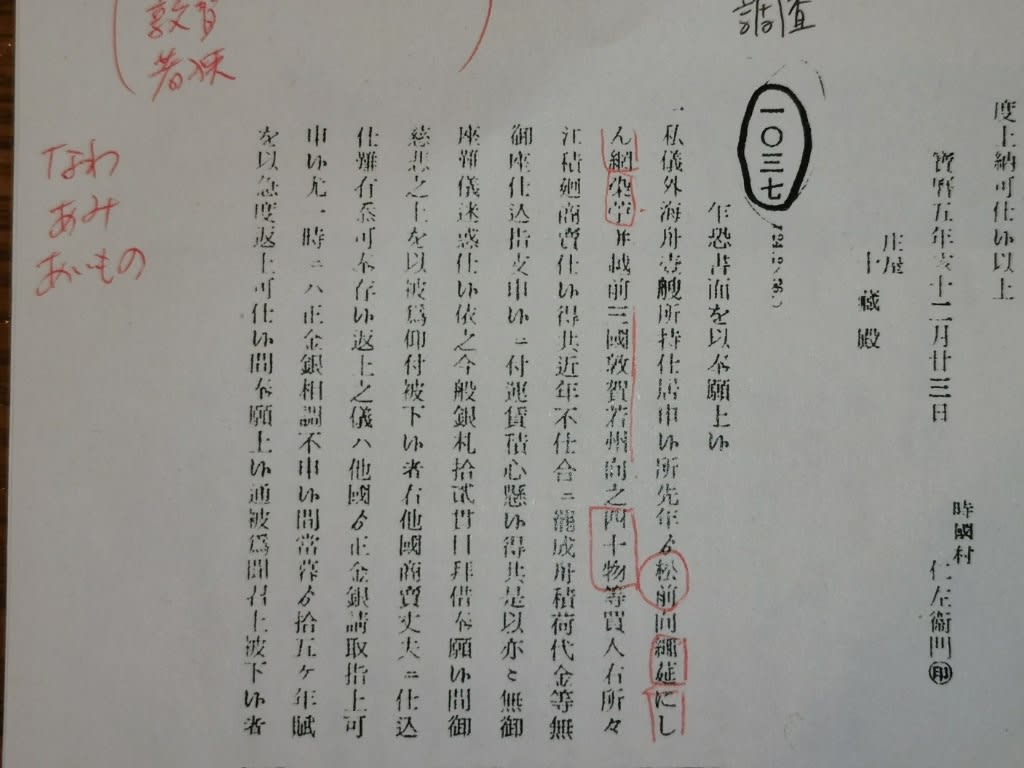 度上納可仕候以上
寶暦五年亥十二月廿三日
時國村
仁左衞門㊞
庄屋
十藏殿
調査
一〇三七
乍恐書面を以奉願上候
一私儀外海舟壹艘所持仕居申候所先年ゟ松前向繩莚にし
ん網染苧并越前三國敦賀若州向之四十物等買入右所々
江積廻商賣仕候得共近年不仕合ニ罷成舟積荷代金等無
御座仕込指支申候ニ付運賃積心懸候得共是以亦と無御
座難儀迷惑仕候依之今般銀札拾貳貫目拜借奉願候間御
慈悲之上を以被爲仰付被下候者右他國商賣丈夫ニ仕込
仕難有奉可存候返上之儀ハ他國ゟ正金銀請取指上可
申候尤一時ニハ正金銀相調不申候間當暮ゟ拾五ケ年賦
を以急度返上可仕候間奉願上候通被爲聞召上被下候者
敦賀
若狭
なわ
あみ
あいもの